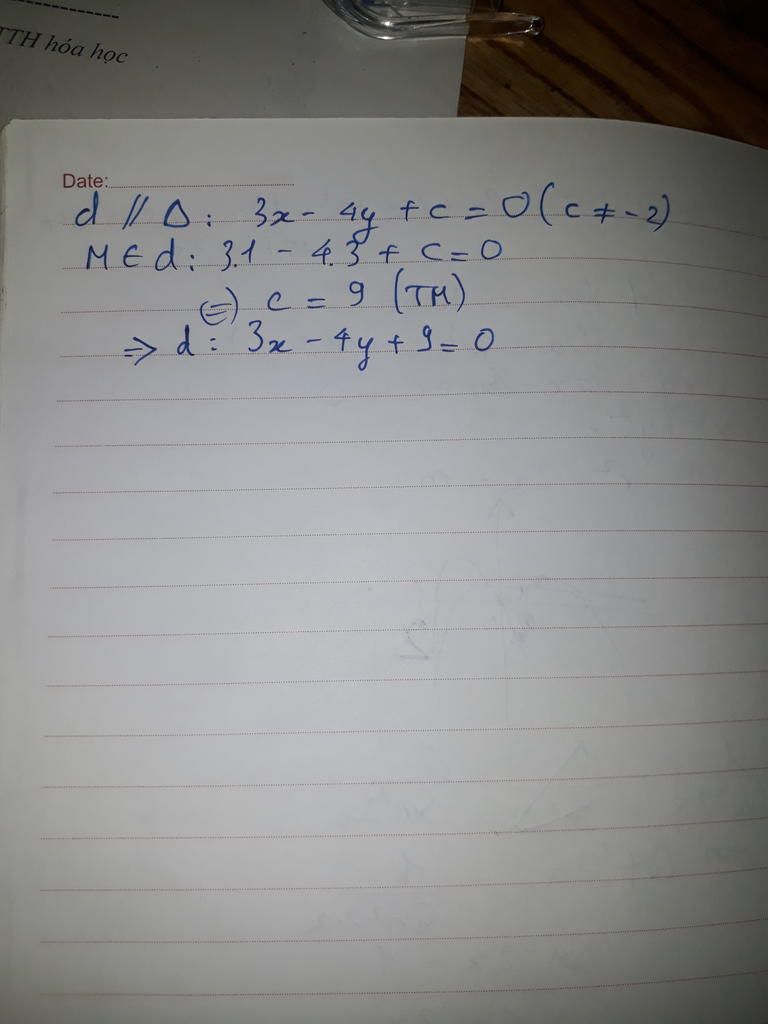 TTH hóa học
Date:
d // Δ: 3x - 4y + c = 0 ( c ≠ -2)
M ∈ d: 3.1 - 4.3 + c = 0
(=) c = 9 (TM)
=> d: 3x - 4y + 9 = 0